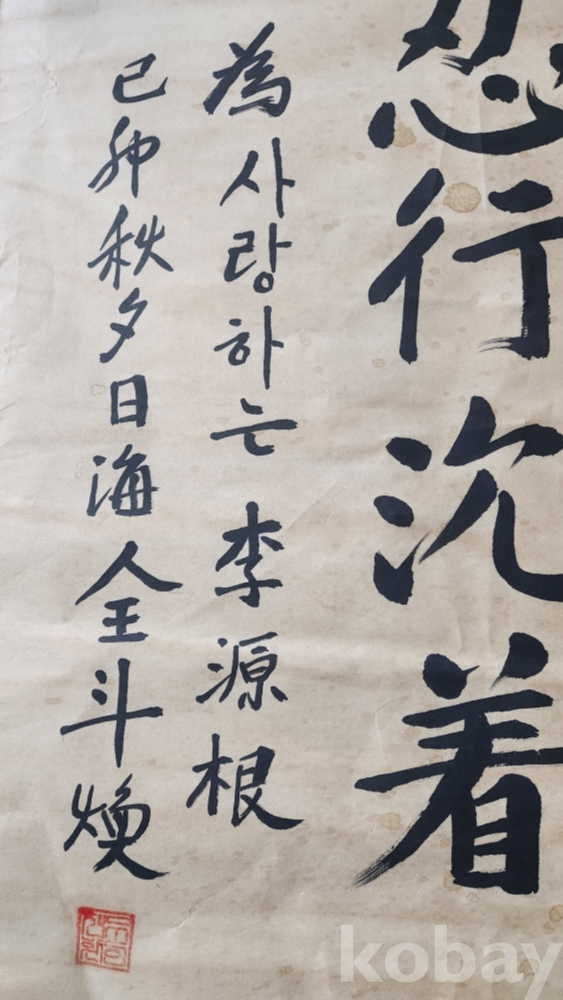 忍行沈着
為사랑하는 李源根
己卯秋夕 日海 全斗煥
kobay